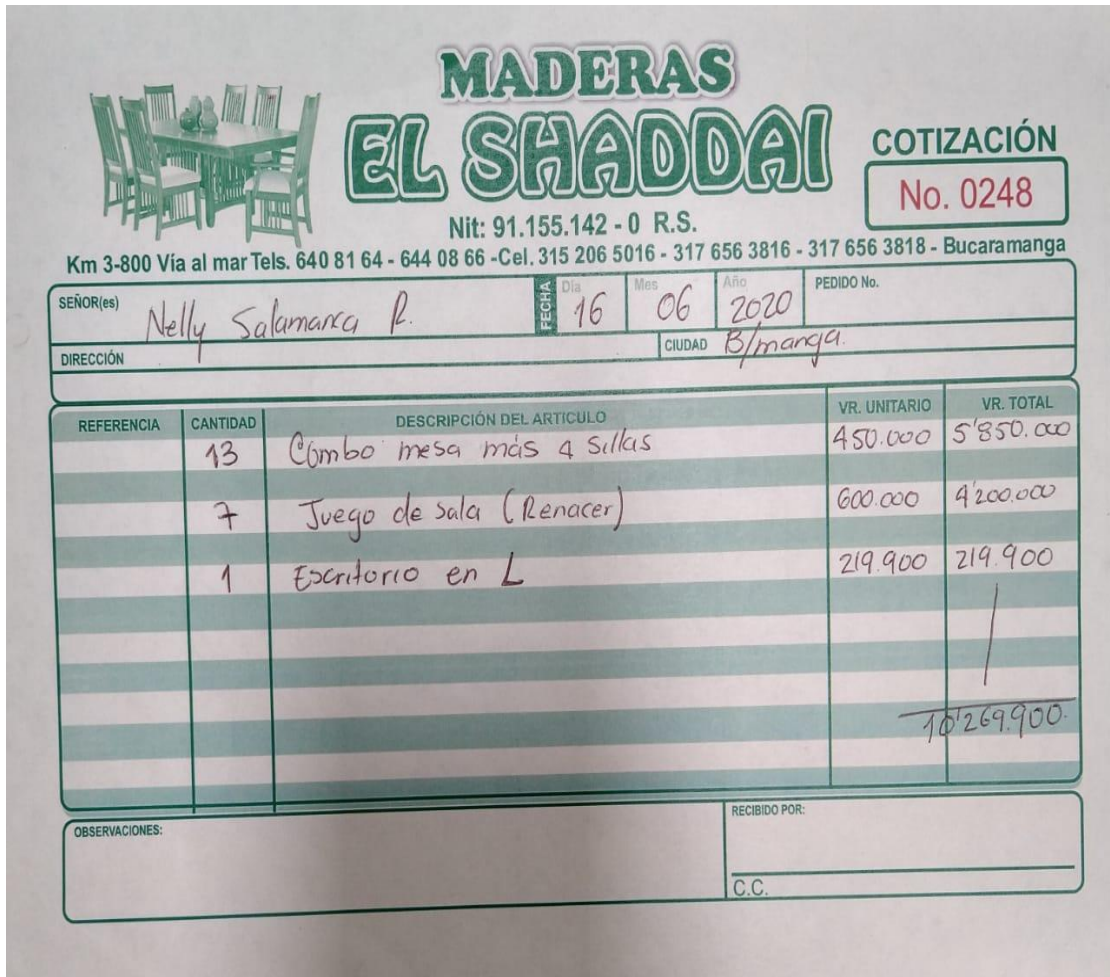 MADERAS
EL SHADDAI
COTIZACIÓN
No. 0248
Nit: 91.155.142 - 0 R.S.
Km 3-800 Vía al mar Tels. 640 81 64 - 644 08 66 -Cel. 315 206 5016 - 317 656 3816 - 317 656 3818 - Bucaramanga
SEÑOR(es) Nelly Salamanca R. FECHA Día 16 Mes 06 Año 2020 PEDIDO No.
DIRECCIÓN CIUDAD B/manga.
REFERENCIA CANTIDAD DESCRIPCIÓN DEL ARTICULO VR. UNITARIO VR. TOTAL
13 Combo mesa más 4 sillas 450.000 5'850.000
7 Juego de sala (Renacer) 600.000 4'200.000
1 Escritorio en L 219.900 219.900
10'269.900.
OBSERVACIONES: RECIBIDO POR:
C.C.